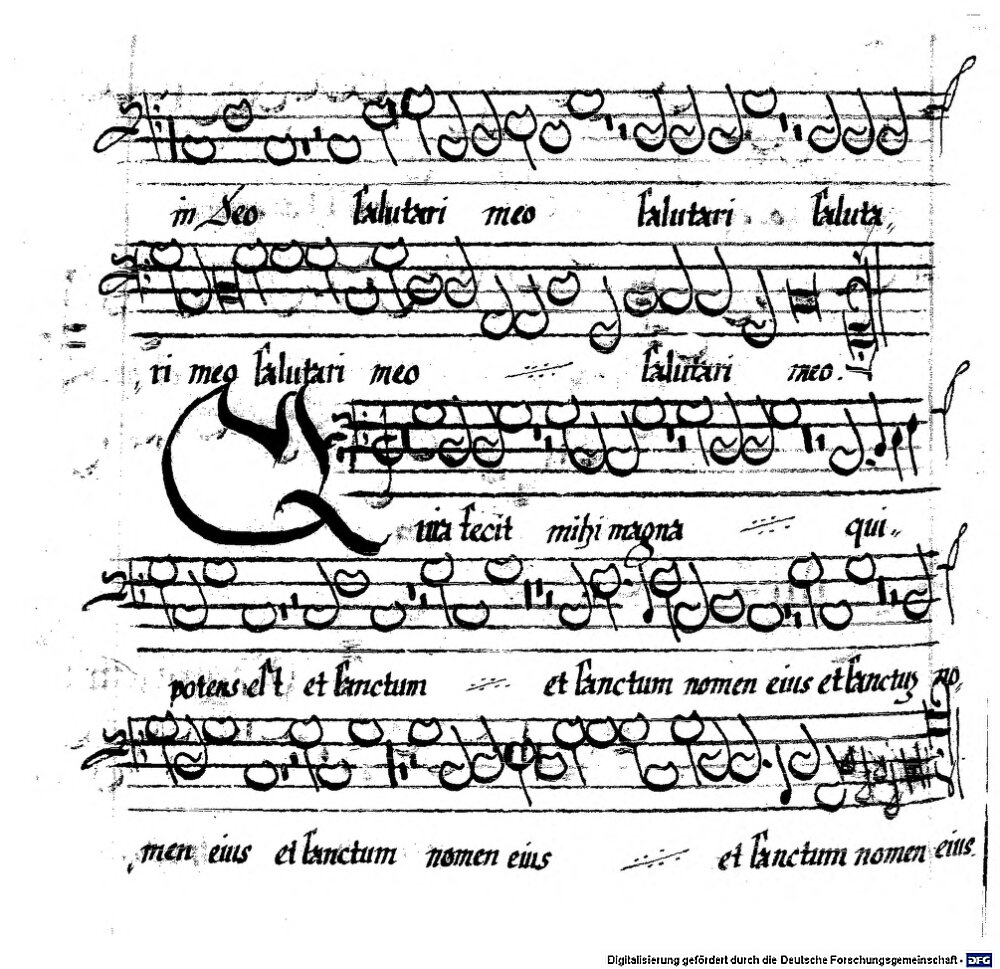 in Deo salutari meo salutari saluta,,
,ri meo salutari meo salutari meo.
Quia fecit mihi magna qui,,
potens est et sanctum et sanctum nomen eius et sanctuz no,,
,men eius et sanctum nomen eius et sanctum nomen eius.
Digitalisierung gefördert durch die Deutsche Forschungsgemeinschaft - DFG